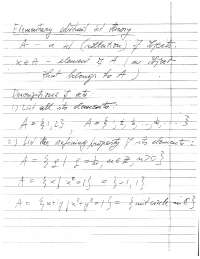 Elementary set theory
A - a set (collection) of objects.
x ∈ A - element of A (an object
that belongs to A)
Descriptions of sets
1) List all its elements:
A = {1, 2} A = {
2) List the defining property of its elements:
A = {x | x² = 1} = {-1, 1}
x² + y² = 1} = {unit circle